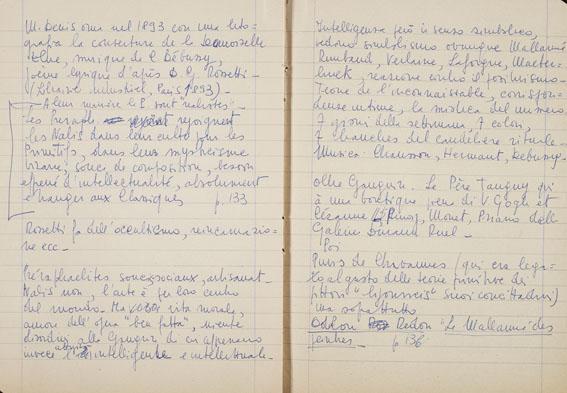 M. Denis orna nel 1893 con una lito=
grafia la couverture de la Demoiselle
Elue, musique de C. Debussy,
poème lyrique d'après D. G. Rossetti -
(Librairie industriel, Paris 1893) -
A leur manière les Nabis
Les Préraph rejoignent
les Nabis dans leur culte pour les
Primitifs, dans leur mysticisme
bizarre, souci de composition, besoin
effréné d'intellectualité, absolument
étranger aux Classiques p. 133
Rossetti fa dell'occultismo, reincarnazio=
ne ecc -
Préraphaelites sociaux, artisanat -
Nabis non, l'arte è per loro centro
del mondo. Ma vita morale,
amore dell' opra "ben fatta", niente
disordini alla Gauguin di cui apprezzano
invece l' intelligente e intellettuale -
Intelligenza però in senso simbolico,
vedono simbolismo ovunque Mallarmé
Rimbaud, Verlaine, Laforgue, Maeter=
linck, reazione contro il positivismo -
Teorie de l'inconnaissable, corrispon=
denze intime, la mistica del numero
7 giorni della settimana, 7 colori,
7 branches del candeliere rituale -
Musica: Chausson, Debussy -
oltre Gauguin. Le Père Tanguy qui
a une boutique pena di V Gogh et
Cézanne Monet, Pissarro dalle
Galerie Durand Ruel -
Poi
Puvis de Chavannes (qui era lega=
to al gusto delle teorie primitive dei
pittori "lyonnais" suoi concittadini)
ma sopratutto
Odilon Redon "Le Mallarmé des
peintres - p 136